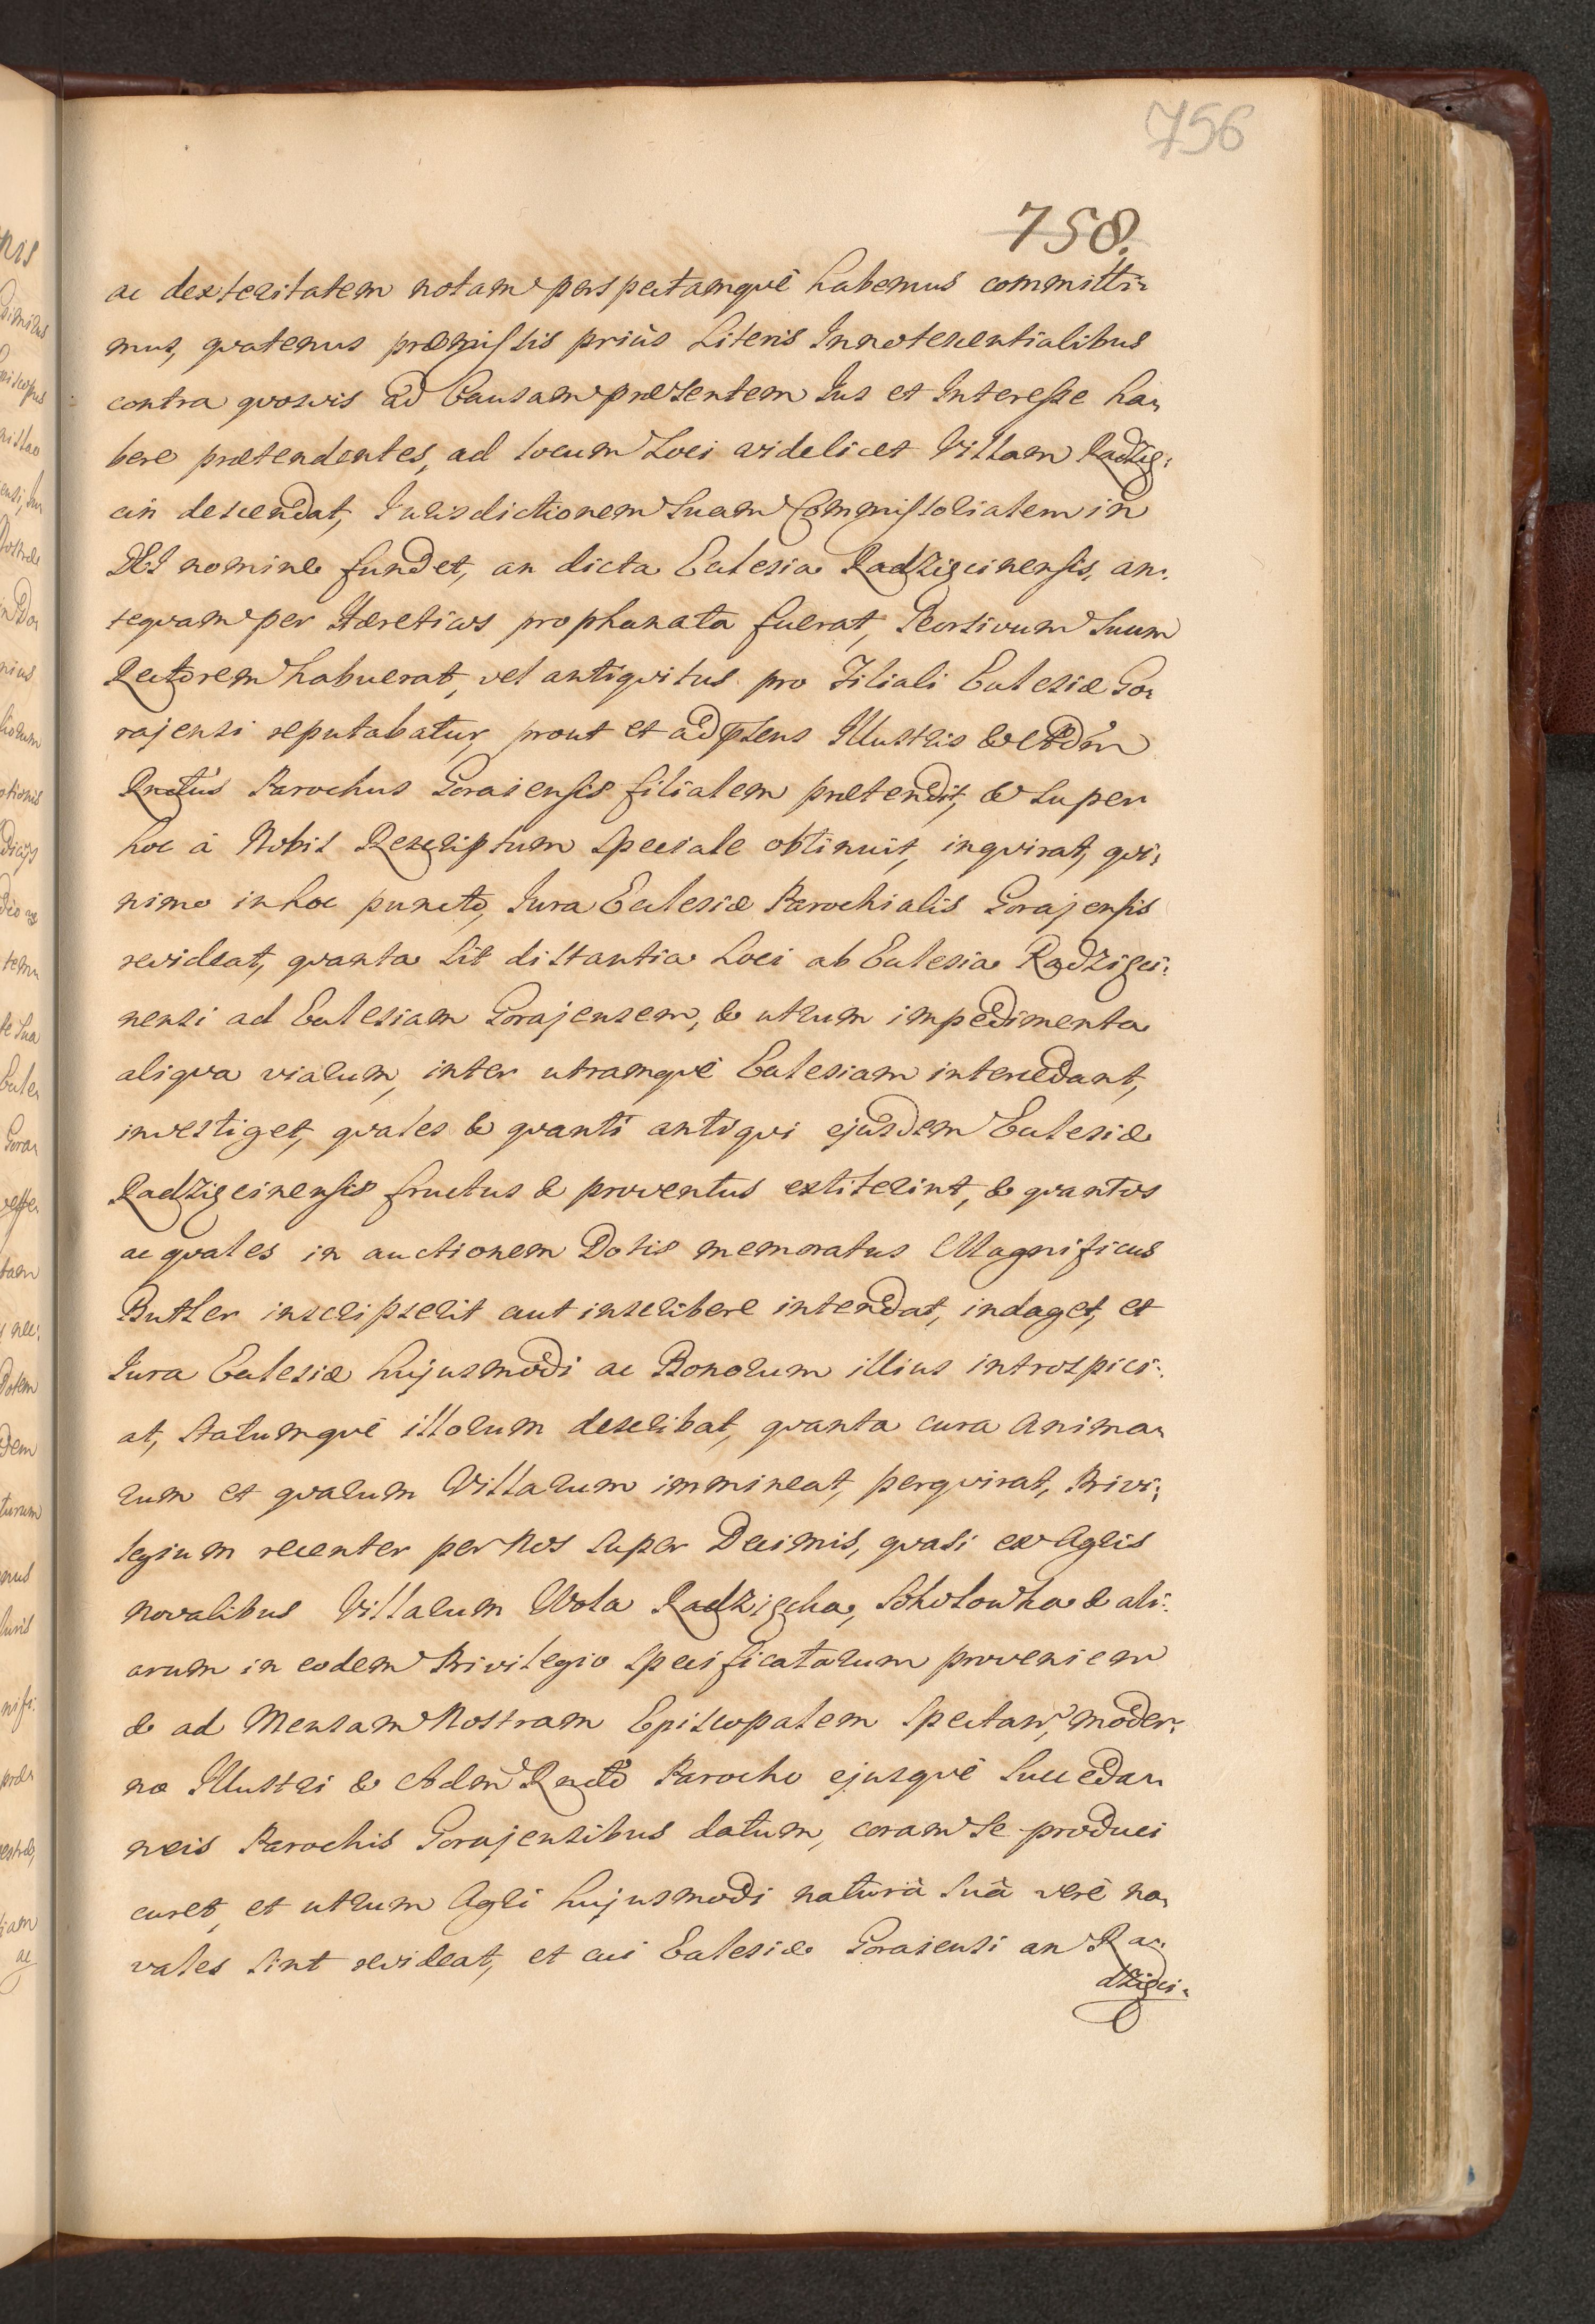 756
758.
ac dexteritatem notam perspectamqvè habemus committi-
mus, qvatenus præmissis priùs Literis Innotescentialibus
contra qvosvis ad Causam præsentem Jus et Interesse ha-
bere prætendentes, ad locum Loci videlicet Villam Radzię-
cin descendat, Jurisdictionem Suam Commissorialem in
DEI nomine fundet, an dicta Ecclesia Radzięcinensis, an-
teqvam per Hæreticos prophanata fuerat, Seorsivum Suum
Rectorem habuerat, vel antiqvitus pro Filiali Ecclesiæ Go-
rajensi reputabatur, prout et ad pñsens Illustris & Adm̃
Rndūs Parochus Goraiensis filialem prætendit, & super
hoc à Nobis Rescriptum Speciale obtinuit, inqvirat, qvi-
nimo in hoc puncto, Jura Ecclesiæ Parochialis Gorajensis
revideat, qvanta sit distantia Loci ab Ecclesia Radzięci-
nensi ad Ecclesiam Gorajensem, & utrum impedimenta
aliqva viarum, inter utramqvè Ecclesiam intercedant,
investiget, qvales & qvanti antiqvi ejusdem Ecclesiæ
Radzięcinensis fructus & proventus extiterint, & qvantos
ac qvales in auctionem Dotis memoratus Magnificus
Butler inscripserit aut inscribere intendat, indaget, et
Jura Ecclesiæ hujusmodi ac Bonorum illius introspici-
at, Statumqvè illorum describat, qvanta cura Anima-
rum et qvarum Villarum immineat, perqvirat, Privi-
legium recenter per Nos super Decimis, qvasi ex Agris
novalibus Villarum Wola Radzięcka, Sokołowka & ali-
arum in eodem Privilegio specificatarum provenien
& ad Mensam Nostram Episcopalem Spectan, moder-
no Illustri & Adm̃ Rndō Parocho ejusqvè Succeda-
neis Parochis Gorajensibus datum, coram Se produci
curet, et utrum Agri hujusmodi naturâ suâ verè no-
vales sint revideat, et cui Ecclesiæ Goraiensi an Ra-
dzięci-